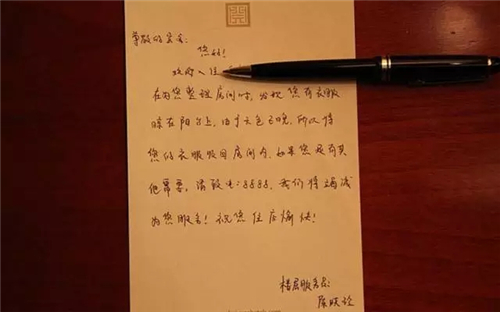 尊敬的宾客:
您好!
欢迎入住
在为您整理房间时,发现您有衣服
晾在阳台上,由于天色已晚,所以将
您的衣服收回房间内,如果您还有其
他需要,请致电:8888,我们将竭诚
为您服务!祝您住店愉快!
楼层服务员